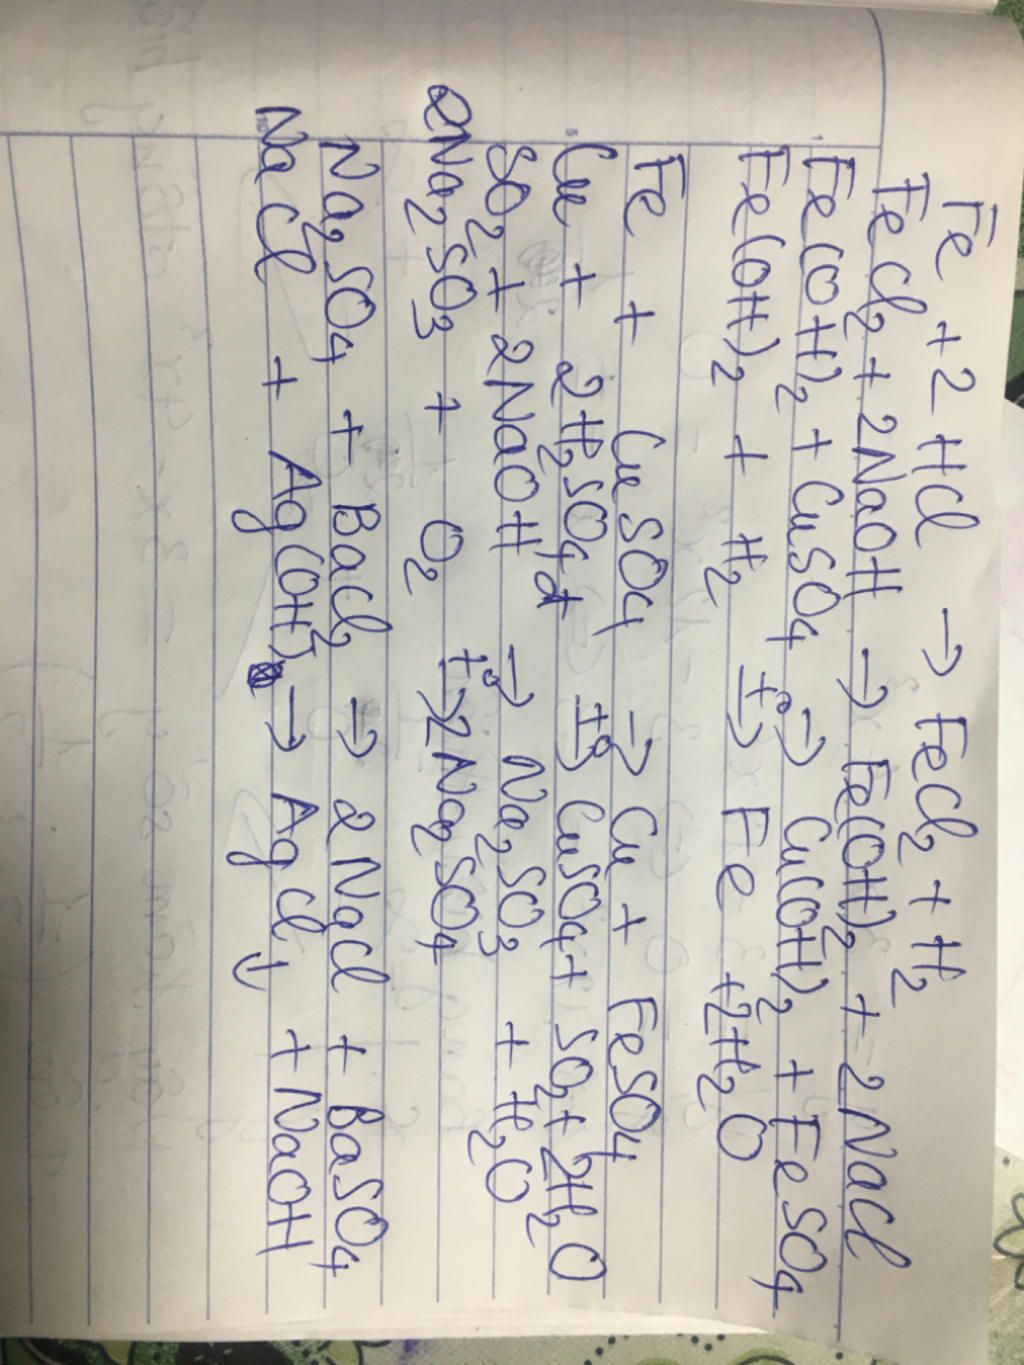 Fe + 2HCl → FeCl2 + H2
FeCl2 + 2NaOH → Fe(OH)2 + 2NaCl
Fe(OH)2 + CuSO4 → Cu(OH)2 + FeSO4
Fe(OH)2 + H2 t°→ Fe + 2H2O
Fe + CuSO4 → Cu + FeSO4
Cu + 2H2SO4 đ t°→ CuSO4 + SO2 + 2H2O
SO2 + 2NaOH → Na2SO3 + H2O
2Na2SO3 + O2 t°→ 2Na2SO4
Na2SO4 + BaCl2 → 2NaCl + BaSO4
NaCl + Ag(OH) → AgCl ↓ + NaOH